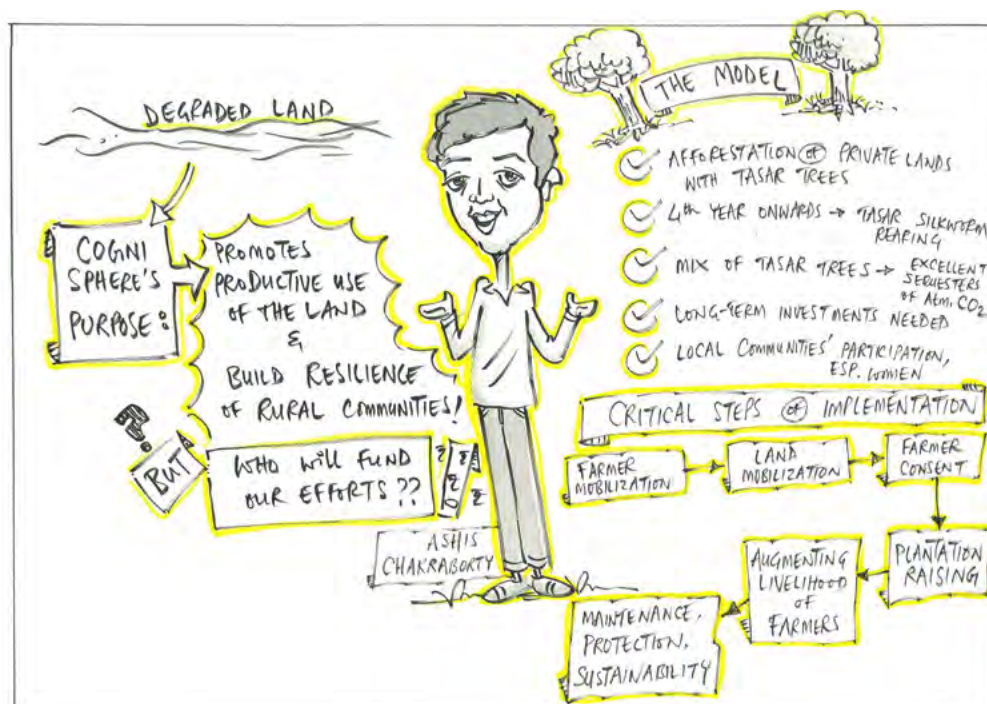 DEGRADED LAND
COGNI
SPHERE'S
PURPOSE:
PROMOTES
PRODUCTIVE USE
OF THE LAND
&
BUILD RESILIENCE
OF RURAL COMMUNITIES!
?
BUT
WHO WILL FUND
OUR EFFORTS ??
ASHIS
CHAKRABORTY
THE MODEL
AFFORESTATION OF PRIVATE LANDS
WITH TASAR TREES
4th YEAR ONWARDS → TASAR SILKWORM
REARING
MIX OF TASAR TREES → EXCELLENT
SEQUESTERS
OF Atm. CO2
LONG-TERM INVESTMENTS NEEDED
LOCAL COMMUNITIES' PARTICIPATION,
ESP. WOMEN
CRITICAL STEPS OF IMPLEMENTATION
FARMER
MOBILIZATION
LAND
MOBILIZATION
FARMER
CONSENT
PLANTATION
RAISING
AUGMENTING
LIVELIHOOD
OF
FARMERS
MAINTENANCE,
PROTECTION,
SUSTAINABILITY